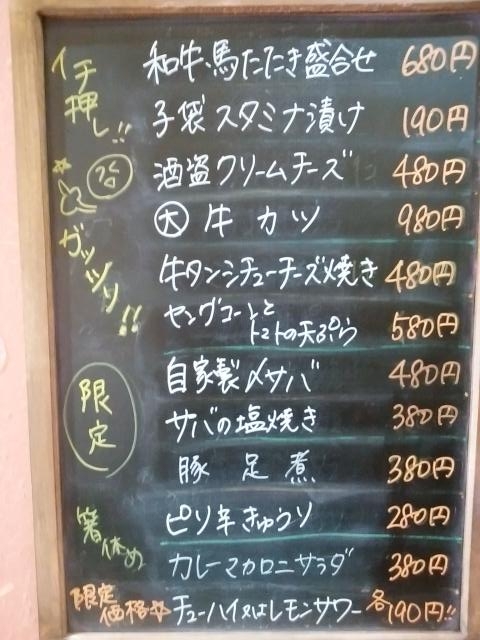 イチ押し!!
和牛・馬たたき盛合せ 680円
子袋スタミナ漬け 190円
酒盗クリームチーズ 480円
大 牛カツ 980円
ガッツリ!!
牛タンシチューチーズ焼き 480円
ヤングコーンと
トマトの天ぷら 580円
限定
自家製〆サバ 480円
サバの塩焼き 380円
豚足煮 380円
箸休め
ピリ辛きゅうり 280円
カレーマカロニサラダ 380円
限定価格☆ チューハイ又はレモンサワー 各190円!!